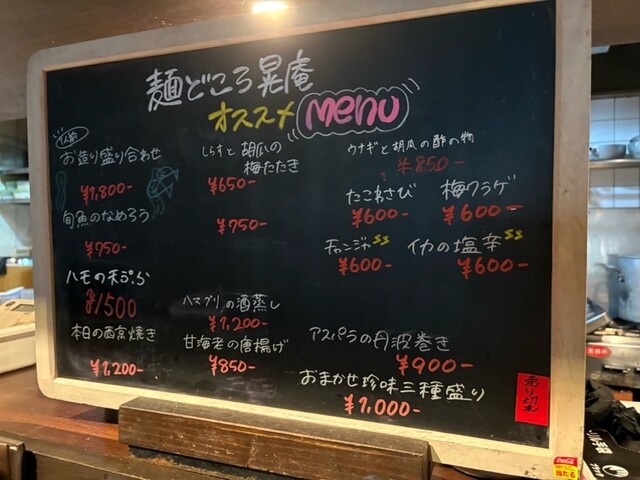 麺どころ晃庵
オススメ Menu
1人前
お造り盛り合わせ
¥1,800-
旬魚のなめろう
¥750-
ハモの天ぷら
¥1500
本日の西京焼き
¥1,200-
しらすと胡瓜の
梅たたき
¥650-
¥750-
ハマグリの酒蒸し
¥1,200-
甘海老の唐揚げ
¥850-
ウナギと胡瓜の酢の物
¥850-
たこわさび
¥600-
梅クラゲ
¥600-
チャンジャ
¥600-
イカの塩辛
¥600-
アスパラの丹波巻き
¥900-
おまかせ珍味三種盛り
¥1,000-
売り切れ
Coca-Cola
当たる